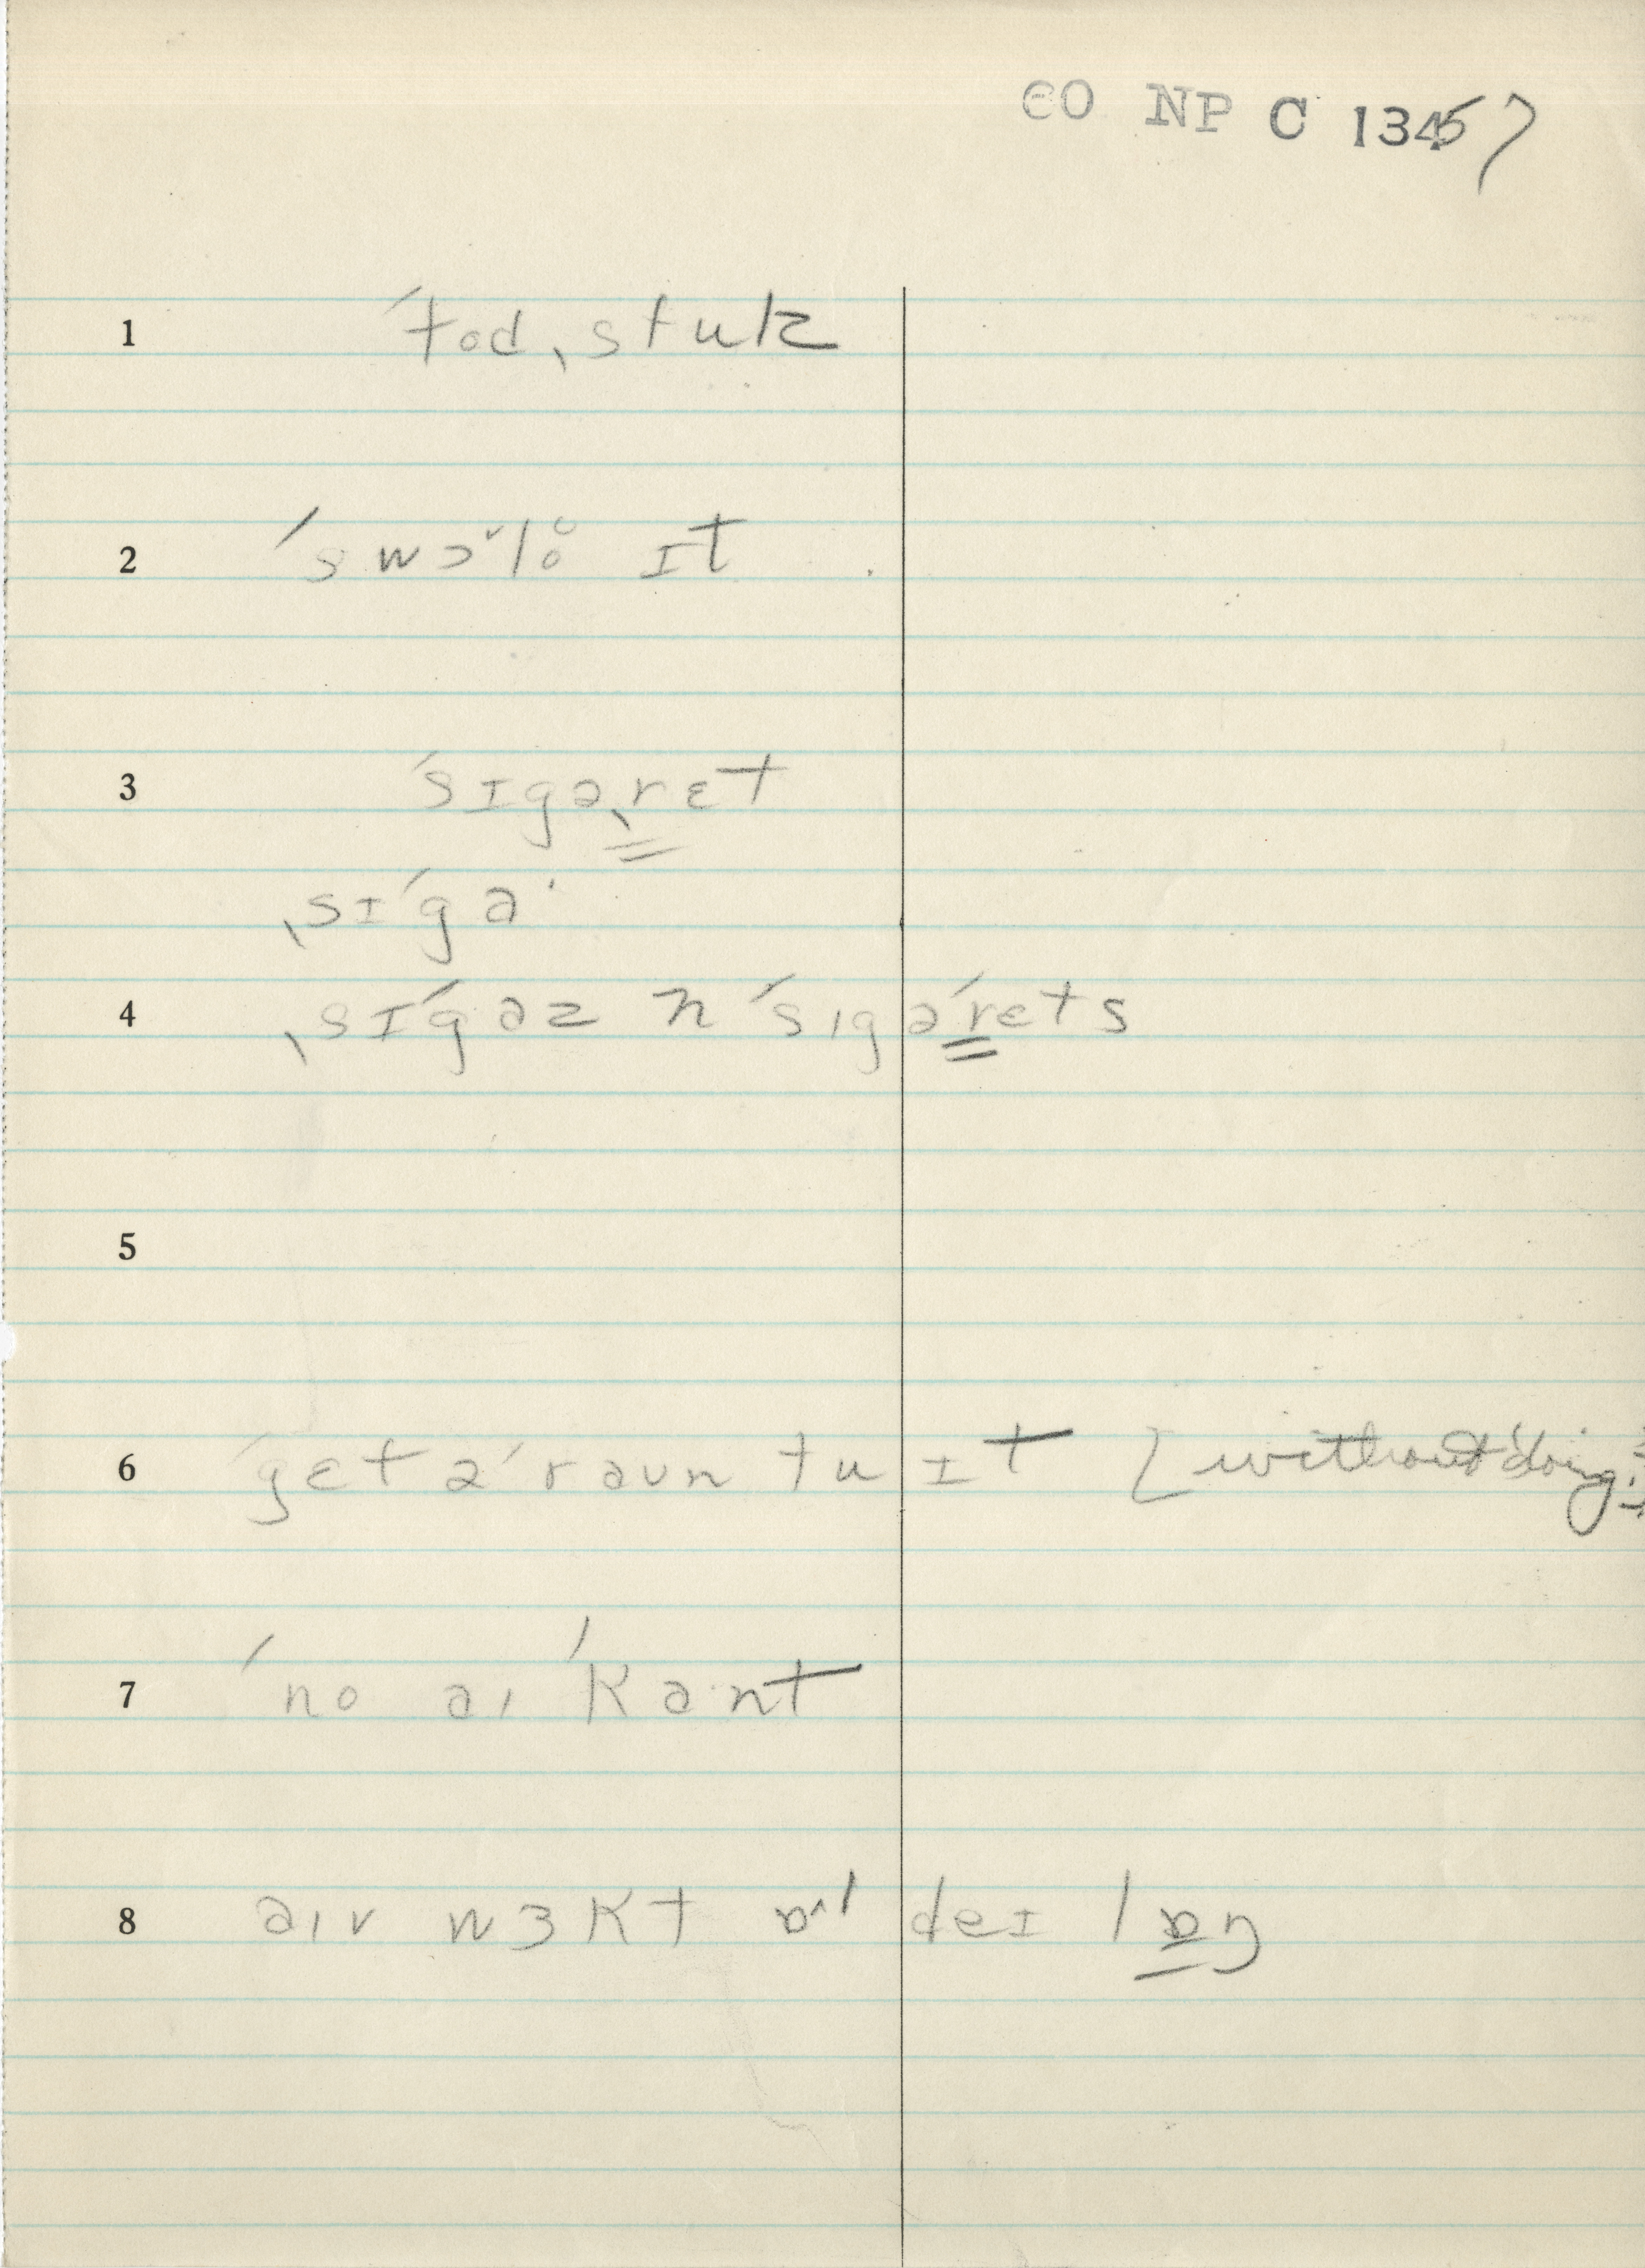 CO NP C 13457
1 ˈtodˌstuk
2 ˈswɔ˅lo̜̊ ɪt
3 ˈsɪgəˌrɛt
ˌsɪˈga·
4 ˌsɪˈgaz n ˈsɪgəˈrɛts
5
6 ˈgɛt əˈraun tu ɪt [without doing it
7 ˈno aɪ ˈkant
8 aɪv wɜkt ɒ˄l deɪ lɒŋ